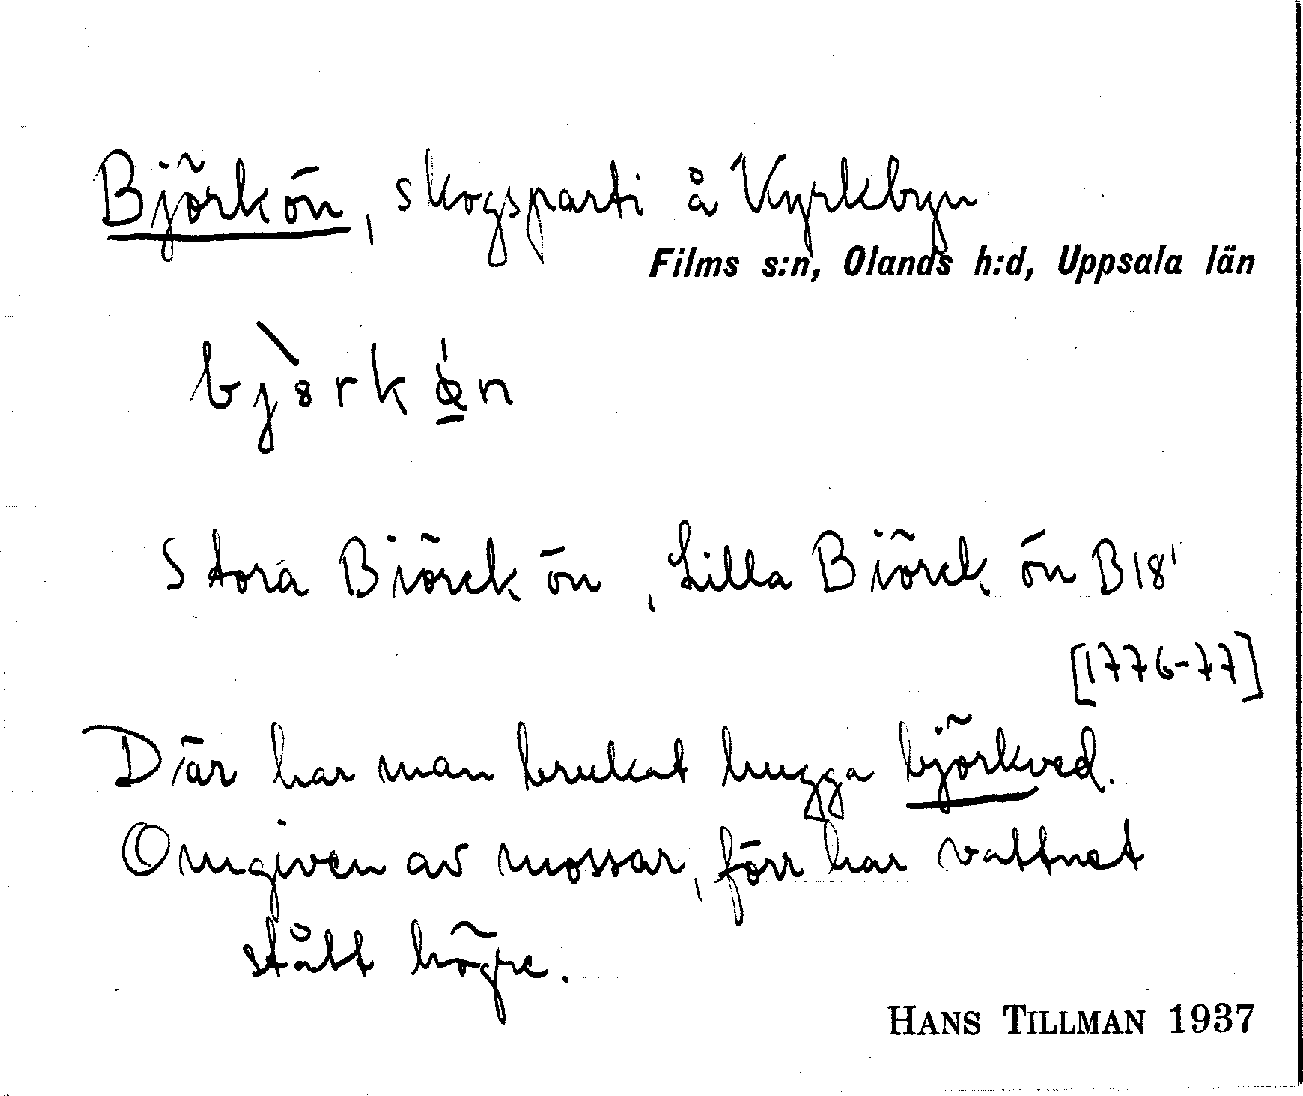 Björkön, skogsparti å Kyrkbyn
Films s:n, Olands h:d, Uppsala län
Stora Biörck ön, Lilla Biörck ön B18'
[1776-77]
Där har man brukat hugga björkved.
Omgiven av mossar, förr har vattnet
stått högre.
HANS TILLMAN 1937